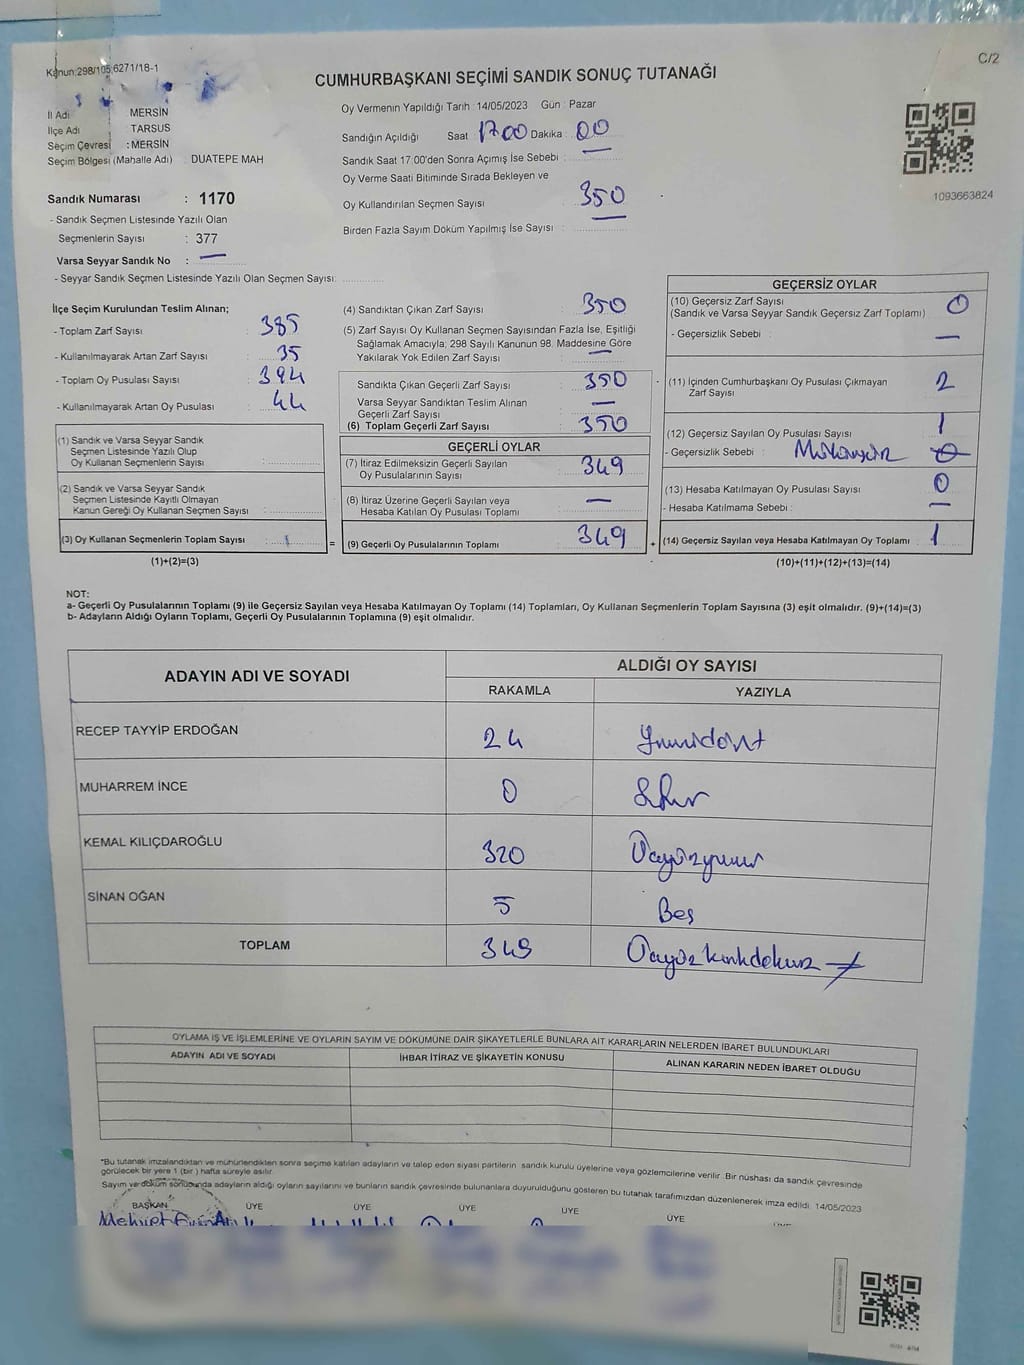 Kanun:298/105,6271/18-1
C/2
CUMHURBAŞKANI SEÇİMİ SANDIK SONUÇ TUTANAĞI
İl Adı : MERSİN
İlçe Adı : TARSUS
Seçim Çevresi : MERSİN
Seçim Bölgesi (Mahalle Adı) : DUATEPE MAH
Sandık Numarası : 1170
- Sandık Seçmen Listesinde Yazılı Olan
Seçmenlerin Sayısı : 377
Varsa Seyyar Sandık No : —
- Seyyar Sandık Seçmen Listesinde Yazılı Olan Seçmen Sayısı:
Oy Vermenin Yapıldığı Tarih : 14/05/2023 Gün : Pazar
Sandığın Açıldığı Saat : 17.00 Dakika : 00
Sandık Saat 17.00'den Sonra Açımış İse Sebebi :
Oy Verme Saati Bitiminde Sırada Bekleyen ve
Oy Kullandırılan Seçmen Sayısı : 350
Birden Fazla Sayım Döküm Yapılmış İse Sayısı :
1093663824
İlçe Seçim Kurulundan Teslim Alınan;
- Toplam Zarf Sayısı : 385
- Kullanılmayarak Artan Zarf Sayısı : 35
- Toplam Oy Pusulası Sayısı : 394
- Kullanılmayarak Artan Oy Pusulası : 44
(1) Sandık ve Varsa Seyyar Sandık
Seçmen Listesinde Yazılı Olup
Oy Kullanan Seçmenlerin Sayısı :
(2) Sandık ve Varsa Seyyar Sandık
Seçmen Listesinde Kayıtlı Olmayan
Kanun Gereği Oy Kullanan Seçmen Sayısı :
(3) Oy Kullanan Seçmenlerin Toplam Sayısı :
(1)+(2)=(3)
(4) Sandıktan Çıkan Zarf Sayısı : 350
(5) Zarf Sayısı Oy Kullanan Seçmen Sayısından Fazla İse, Eşitliği
Sağlamak Amacıyla; 298 Sayılı Kanunun 98. Maddesine Göre
Yakılarak Yok Edilen Zarf Sayısı : —
Sandıkta Çıkan Geçerli Zarf Sayısı : 350
Varsa Seyyar Sandıktan Teslim Alınan
Geçerli Zarf Sayısı : —
(6) Toplam Geçerli Zarf Sayısı : 350
GEÇERLİ OYLAR
(7) İtiraz Edilmeksizin Geçerli Sayılan
Oy Pusulalarının Sayısı : 349
(8) İtiraz Üzerine Geçerli Sayılan veya
Hesaba Katılan Oy Pusulası Toplamı : —
= (9) Geçerli Oy Pusulalarının Toplamı : 349
GEÇERSİZ OYLAR
(10) Geçersiz Zarf Sayısı
(Sandık ve Varsa Seyyar Sandık Geçersiz Zarf Toplamı) : 0
- Geçersizlik Sebebi : —
(11) İçinden Cumhurbaşkanı Oy Pusulası Çıkmayan
Zarf Sayısı : 2
(12) Geçersiz Sayılan Oy Pusulası Sayısı : 1
- Geçersizlik Sebebi :
(13) Hesaba Katılmayan Oy Pusulası Sayısı : 0
- Hesaba Katılmama Sebebi : —
+ (14) Geçersiz Sayılan veya Hesaba Katılmayan Oy Toplamı : 1
(10)+(11)+(12)+(13)=(14)
NOT:
a- Geçerli Oy Pusulalarının Toplamı (9) ile Geçersiz Sayılan veya Hesaba Katılmayan Oy Toplamı (14) Toplamları, Oy Kullanan Seçmenlerin Toplam Sayısına (3) eşit olmalıdır. (9)+(14)=(3)
b- Adayların Aldığı Oyların Toplamı, Geçerli Oy Pusulalarının Toplamına (9) eşit olmalıdır.
ADAYIN ADI VE SOYADI ALDIĞI OY SAYISI
RAKAMLA YAZIYLA
RECEP TAYYİP ERDOĞAN 24 Yirmidört
MUHARREM İNCE 0 Sıfır
KEMAL KILIÇDAROĞLU 320 Üçyüzyirmi
SİNAN OĞAN 5 Beş
TOPLAM 349 Üçyüzkırkdokuz
OYLAMA İŞ VE İŞLEMLERİNE VE OYLARIN SAYIM VE DÖKÜMÜNE DAİR ŞİKAYETLERLE BUNLARA AİT KARARLARIN NELERDEN İBARET BULUNDUKLARI
ADAYIN ADI VE SOYADI İHBAR İTİRAZ VE ŞİKAYETİN KONUSU ALINAN KARARIN NEDEN İBARET OLDUĞU
*Bu tutanak imzalandıktan ve mühürlendikten sonra seçime katılan adayların ve talep eden siyasi partilerin sandık kurulu üyelerine veya gözlemcilerine verilir. Bir nüshası da sandık çevresinde
görülecek bir yere 1 (bir ) hafta süreyle asılır.
Sayım ve döküm sonucunda adayların aldığı oyların sayılarını ve bunların sandık çevresinde bulunanlara duyurulduğunu gösteren bu tutanak tarafımızdan düzenlenerek imza edildi. 14/05/2023
BAŞKAN ÜYE ÜYE ÜYE ÜYE ÜYE